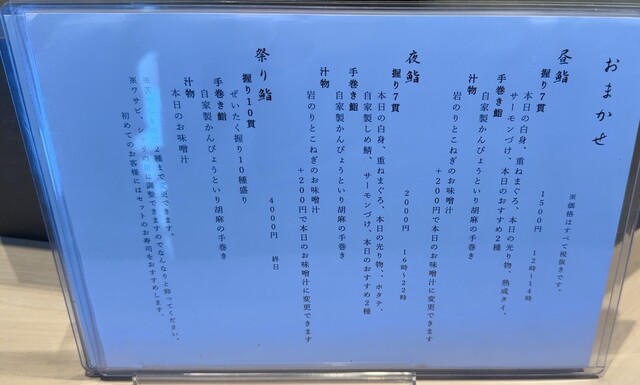 おまかせ
※価格はすべて税抜きです。
昼鮨 1500円 12時〜14時
握り7貫
本日の白身、重ねまぐろ、本日の光り物、熟成タイ、
サーモンづけ、本日のおすすめ2種
手巻き鮨
自家製かんぴょうといり胡麻の手巻き
汁物
岩のりとこねぎのお味噌汁
+200円で本日のお味噌汁に変更できます
夜鮨 2000円 16時〜22時
握り7貫
本日の白身、重ねまぐろ、本日の光り物、ホタテ、
自家製しめ鯖、サーモンづけ、本日のおすすめ2種
手巻き鮨
自家製かんぴょうといり胡麻の手巻き
汁物
岩のりとこねぎのお味噌汁
+200円で本日のお味噌汁に変更できます
祭り鮨 4000円 終日
握り10貫
ぜいたく握り10種盛り
手巻き鮨
自家製かんぴょうといり胡麻の手巻き
汁物
本日のお味噌汁
2種まで変更できます。
※ワサビ、調整できますのでなんなりと仰ってください。
初めてのお客様にはセットのお寿司をおすすめします。